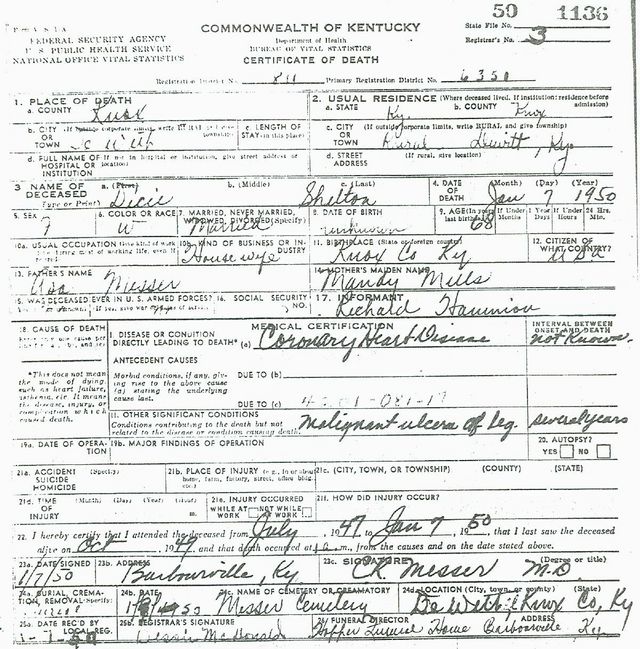 50 1136
COMMONWEALTH OF KENTUCKY
State File No.
FEDERAL SECURITY AGENCY
Department of Health
Registrar's No. 3
U S PUBLIC HEALTH SERVICE
BUREAU OF VITAL STATISTICS
NATIONAL OFFICE VITAL STATISTICS
CERTIFICATE OF DEATH
Registration District No. 811 Primary Registration District No. 6351
1. PLACE OF DEATH
2. USUAL RESIDENCE (Where deceased lived. If institution: residence before admission)
a. COUNTY Knox
a. STATE Ky. b. COUNTY Knox
b. CITY OR TOWN
c. LENGTH OF STAY (in this place)
c. CITY (If outside corporate limits, write RURAL and give township) OR TOWN Rural Dewitt, Ky
d. FULL NAME OF (If not in hospital or institution, give street address or location) HOSPITAL OR INSTITUTION
d. STREET ADDRESS (If rural, give location)
3 NAME OF DECEASED (Type or Print) a. (First) Dicie b. (Middle) c. (Last) Shelton
4. DATE OF DEATH (Month) (Day) (Year) Jan 7 1950
5. SEX F
6. COLOR OR RACE W
7. MARRIED, NEVER MARRIED, WIDOWED, DIVORCED (Specify) Married
8. DATE OF BIRTH unknown
9. AGE (In years last birthday) 68 If Under 1 Year Months Days If Under 24 Hrs. Hours Min.
10a. USUAL OCCUPATION (Give kind of work done during most of working life, even if
10b. KIND OF BUSINESS OR INDUSTRY House wife
11. BIRTHPLACE (State or foreign country) Knox Co Ky
12. CITIZEN OF WHAT COUNTRY? USA
13. FATHER'S NAME Asa Messer
14 MOTHER'S MAIDEN NAME Mandy Mills
15. WAS DECEASED EVER IN U. S. ARMED FORCES?
16. SOCIAL SECURITY NO.
17. INFORMANT Richald
18. CAUSE OF DEATH
MEDICAL CERTIFICATION
INTERVAL BETWEEN ONSET AND DEATH
I. DISEASE OR CONDITION DIRECTLY LEADING TO DEATH* (a) Coronary Heart Disease not Known
*This does not mean the mode of dying, such as heart failure, asthenia, etc. It means the disease, injury, or complication which caused death.
ANTECEDENT CAUSES
Morbid conditions, if any, giving rise to the above cause (a) stating the underlying cause last.
DUE TO (b)
DUE TO (c)
11. OTHER SIGNIFICANT CONDITIONS
Conditions contributing to the death but not related to the disease or condition causing death. Malignant ulcera of leg. several years
19a. DATE OF OPERATION
19b. MAJOR FINDINGS OF OPERATION
20. AUTOPSY? YES NO
21a. ACCIDENT SUICIDE HOMICIDE (Specify)
21b. PLACE OF INJURY (e.g., in or about home, farm, factory, street, office bldg., etc.)
21c. (CITY, TOWN, OR TOWNSHIP) (COUNTY) (STATE)
21d. TIME OF INJURY (Month) (Day) (Year) (Hour) m.
21e. INJURY OCCURRED WHILE AT WORK NOT WHILE WORK
21f. HOW DID INJURY OCCUR?
22. I hereby certify that I attended the deceased from July, 1947 to Jan 7, 1950, that I last saw the deceased
alive on Oct 1949 and that death occurred at m., from the causes and on the date stated above.
23a. DATE SIGNED 1/7/50
23b. ADDRESS Barbourville, Ky
23c. SIGNATURE (Degree or title) C.R. Messer M.D
24a. BURIAL, CREMATION, REMOVAL (Specify)
24b. DATE
24c. NAME OF CEMETERY OR CREMATORY Messer Cemetery
24d LOCATION (City, town, or county) (State) DeWitt Knox Co, Ky
25a. DATE REC'D BY LOCAL REG.
25b. REGISTRAR'S SIGNATURE MacDonald
26. FUNERAL DIRECTOR ADDRESS Hopper Funeral Home Barbourville Ky.